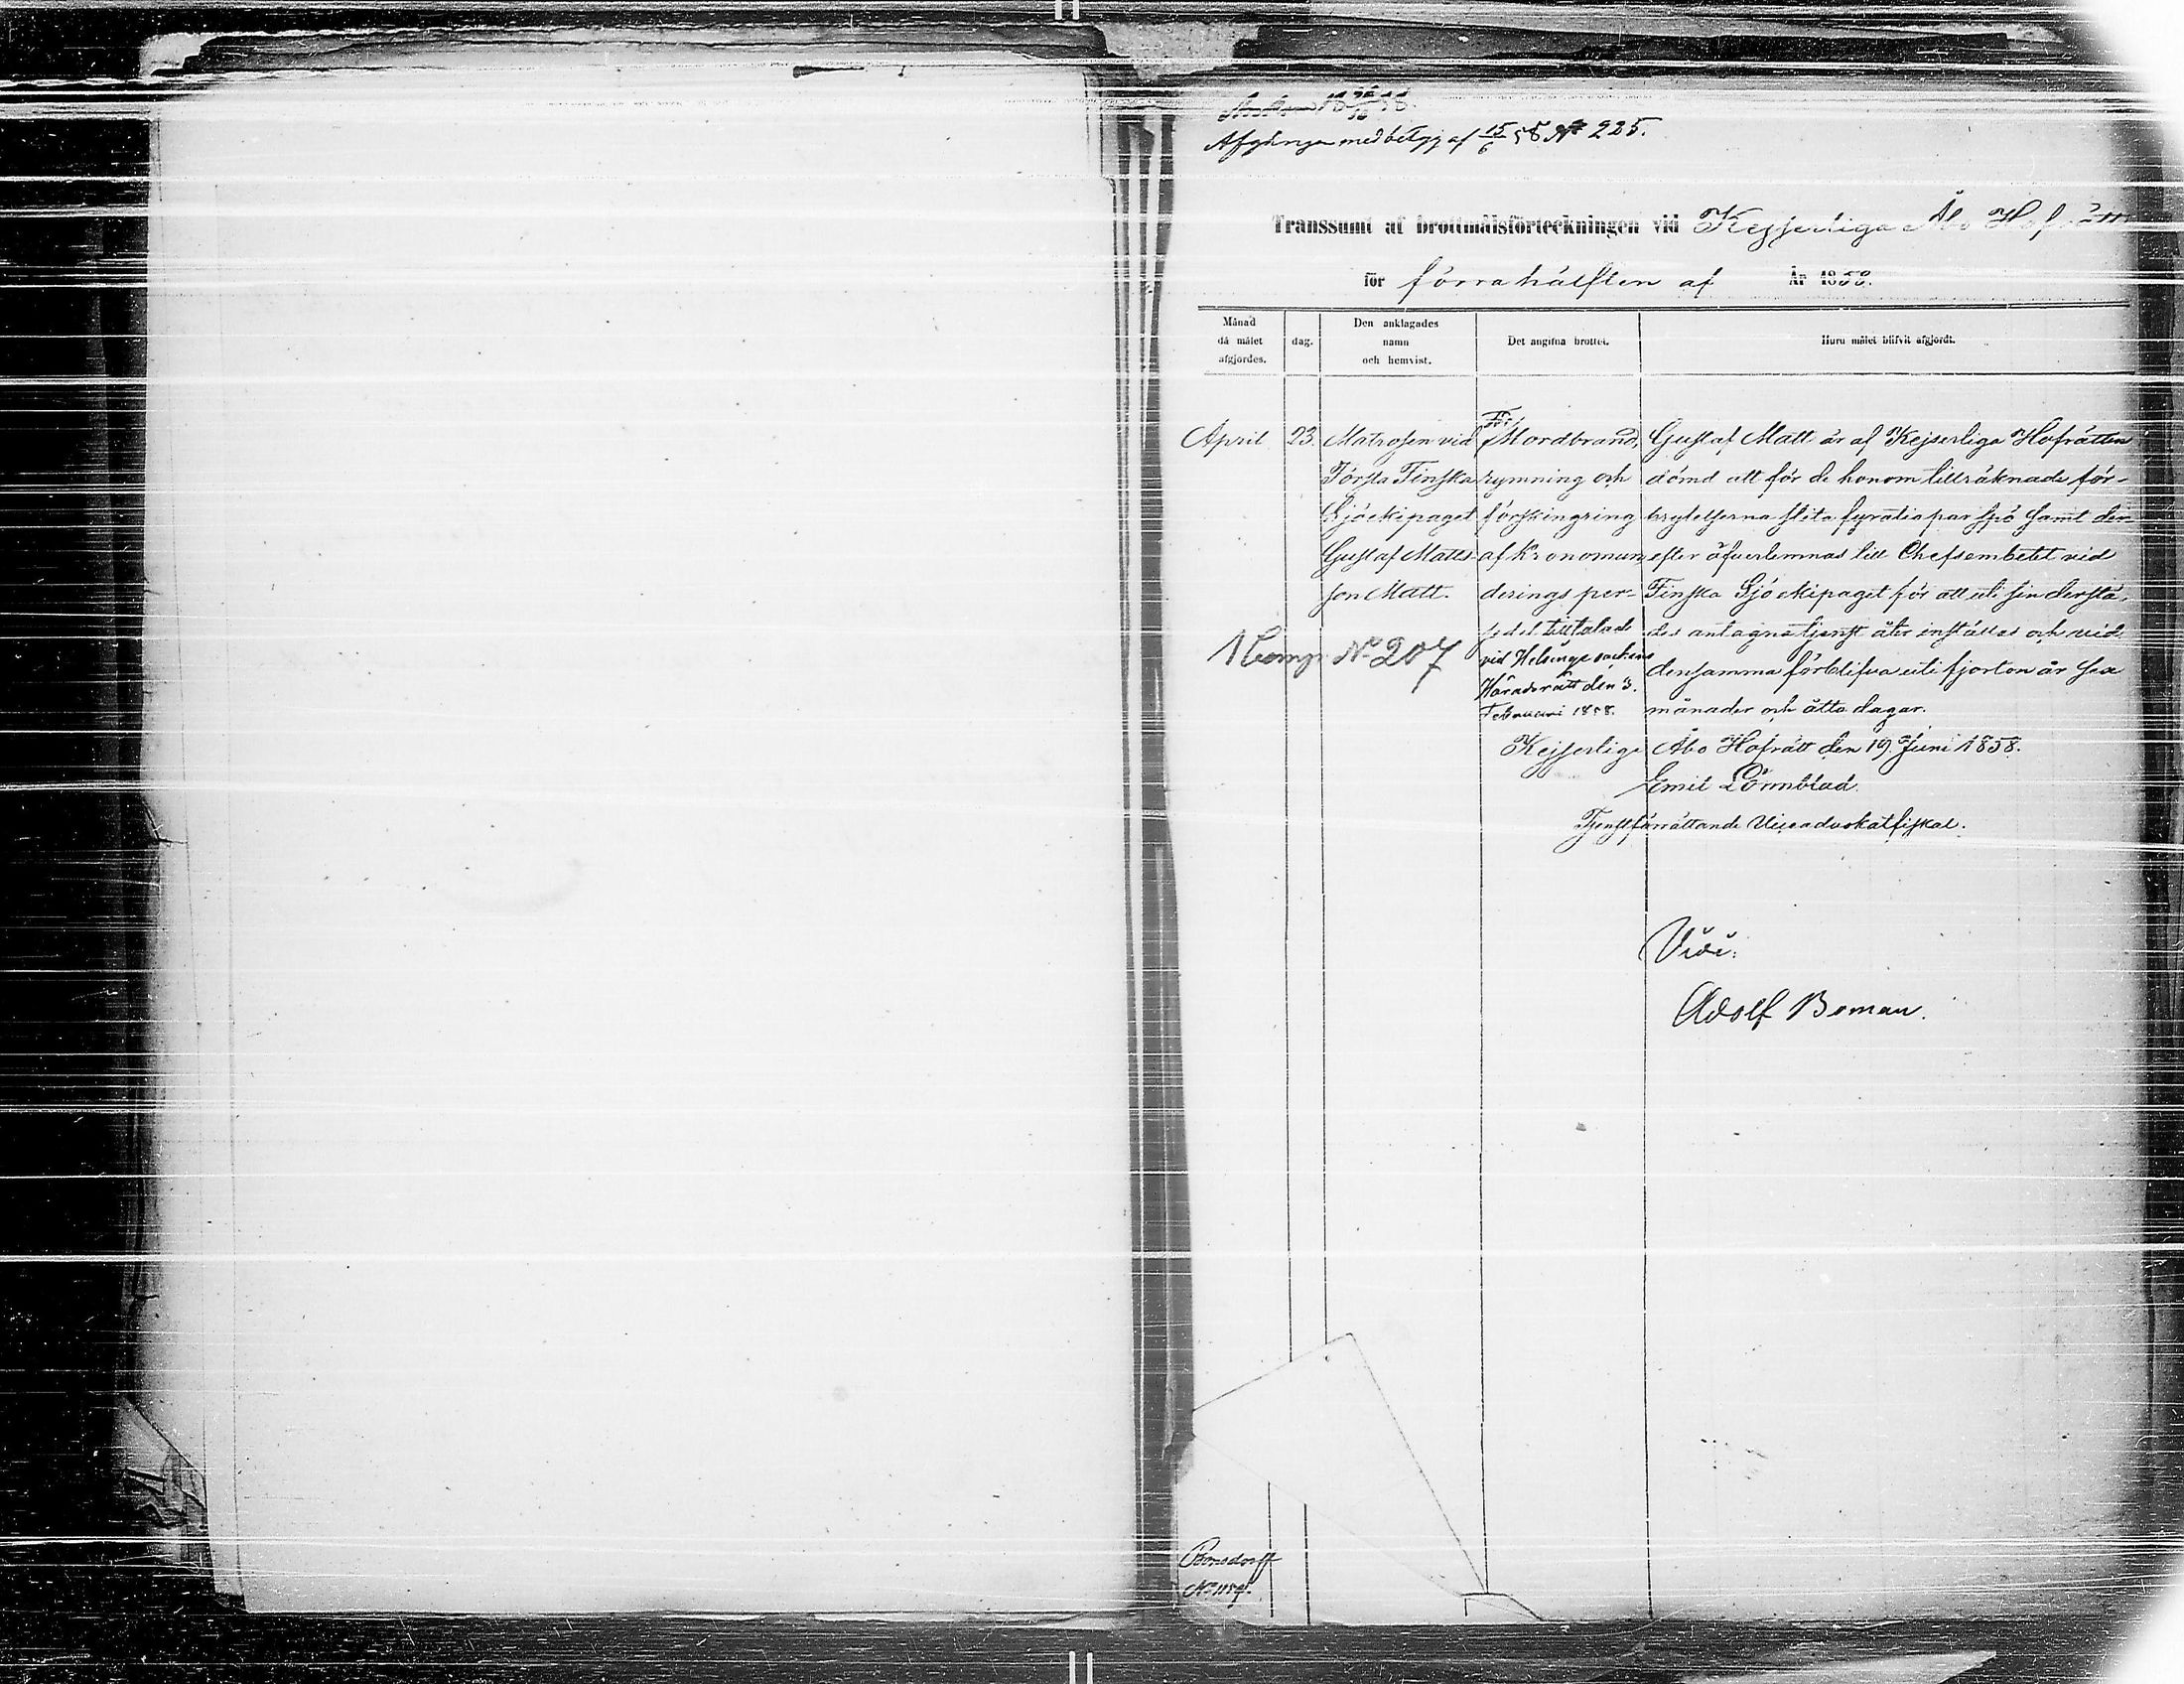 Afgången med betyg af 15/6 58 No 225.
Transsumt af brottmålsförteckningen vid Kejserliga Åbo Hofrätt
för förra hälften af År 1858.
Månad då målet afgjordes.
dag.
Den anklagades namn och hemvist.
Det angifna brottet.
Huru målet blifvit afgjordt.
April
23.
Matrosen vid
Första Finska
Sjöekipaget
Gustaf Matts-
son Matt.
1 Comp. No 207
För
Mordbrand,
rymning och
förskingring
af Kronomun-
derings per-
sedel tilltalad
vid Helsinge sockens
Häradsrätt den 3.
Februari 1858.
Gustaf Matt är af Kejserliga Hofrätten
dömd att för de honom tillräknade för-
brytelserna slita fyratio par spö samt der-
efter öfverlemnas till Chefsembetet vid
Finska Sjöekipaget för att uti sin derstä-
des antagna tjenst åter inställas och vid
densamma förblifva uti fjorton år sex
månader och åtta dagar.
Kejserliga Åbo Hofrätt den 19. Juni 1858.
Emil Lönnblad.
Tjenstförrättande Viceadvokatfiskal.
Vidi:
Adolf Boman.
Bonsdorff